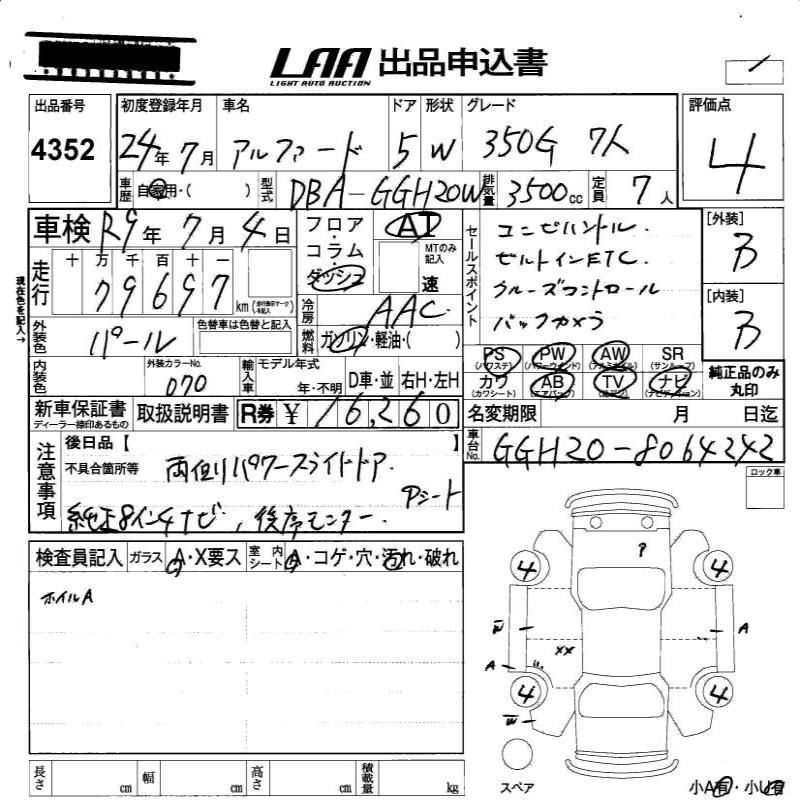 LAA 出品申込書
LIGHT AUTO AUCTION
出品番号 初度登録年月 車名 ドア 形状 グレード 評価点
4352 24年7月 アルファード 5 W 350G 7人 4
車歴 自家用・( ) 型式 DBA-GGH20W 排気量 3500cc 定員 7人
車検 R9年7月4日 フロア・コラム・ダッシュ AT MTのみ記入 速
セールスポイント コンビハンドル
ビルトインETC
クルーズコントロール
バックカメラ
[外装] B
[内装] B
現在色を記入→
走行 十万千百十一 79697 km (走行表示マーク)を記入
冷房 AAC
外装色 パール 色替車は色替と記入
燃料 ガソリン・軽油・( )
PS (パワステ) PW (パワーウィンド) AW (アルミホイル) SR (サンルーフ)
カワ (カワシート) AB (エアバッグ) TV ナビ (ナビゲーション)
純正品のみ丸印
内装色 外装カラーNo. 070 輸入車 モデル年式 年・不明 D車・並 右H・左H
新車保証書 ディーラー捺印あるもの 取扱説明書 R券 ¥ 16,260
名変期限 月 日迄
車台No. GGH20-8064242
注意事項 後日品【 】
不具合箇所等 両側パワースライドドア.
Pシート
純正8インチナビ, 後席モニター.
ロック車
検査員記入 ガラス A・X要ス 室内シート A・コゲ・穴・汚れ・破れ
ホイルA
P
4 4
W A
XX
A U
4 4
W
スペア
小A有・小U有
長さ cm 幅 cm 高さ cm 積載量 kg